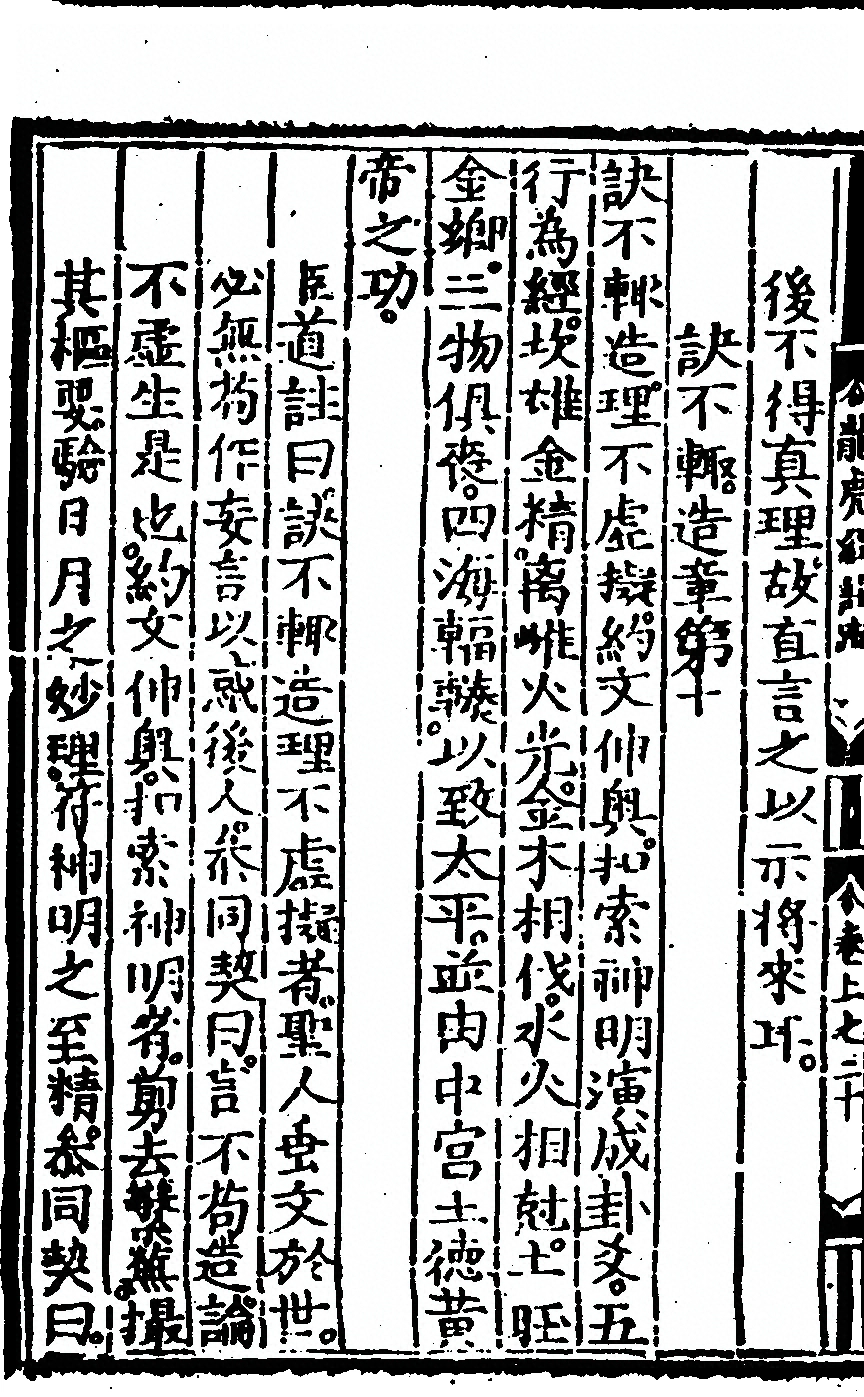 後不得真理故直言之以示將來耳。
訣不輙。造章第十
訣不輙造理。不虛擬約文伸奧。扣索神明演成卦爻。五
行為經。坎雄金精。离雌火光。金木相伐。水火相尅。土旺
金鄉。三物俱喪。四海輻輳。以致太平。並由中宮土德黃
帝之功。
臣道註曰。訣不輙造理不虛擬者。聖人垂文於世。
必無茍作妄言以惑後人。叅同契曰。言不茍造。論
不虛生是也。約文伸奧。扣索神明者。剪去繁蕪。撮
其樞要。驗日月之妙理。符神明之至精。叅同契曰。
龍虎經註
卷上七 二十